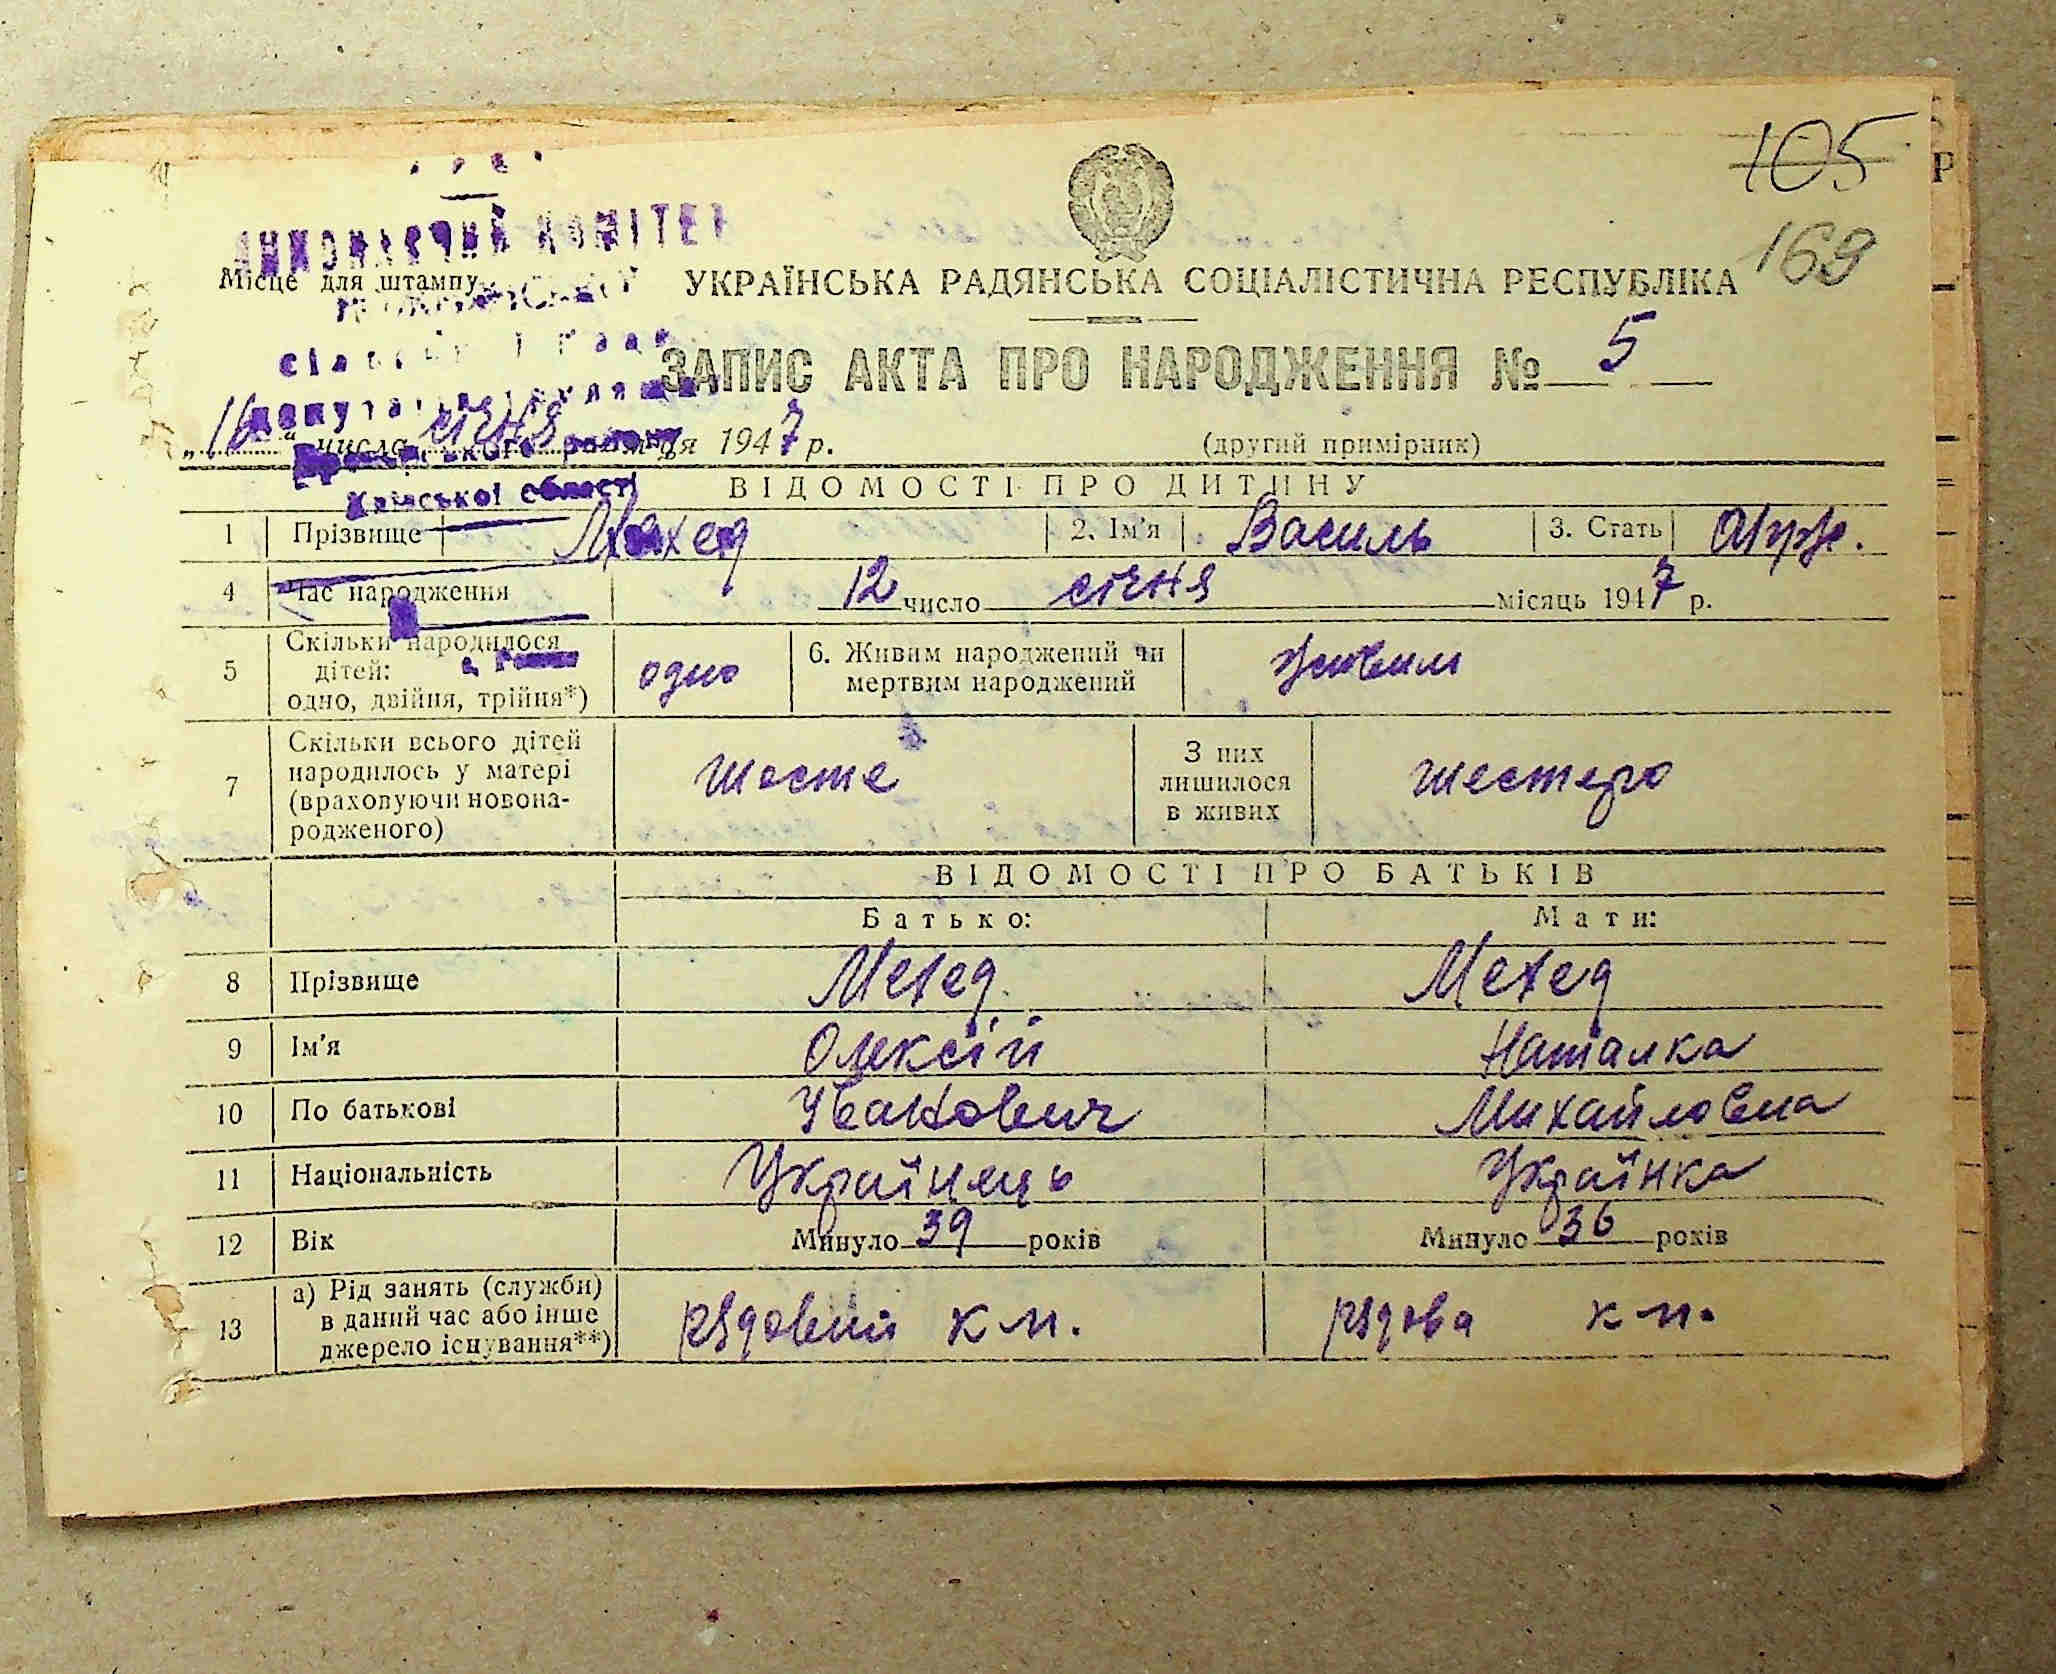 105
169
КОМІТЕТ
Місце для штампу
УКРАЇНСЬКА РАДЯНСЬКА СОЦІАЛІСТИЧНА РЕСПУБЛІКА
ЗАПИС АКТА ПРО НАРОДЖЕННЯ № 5
„16“ числа січня місяця 1947 р. (другий примірник)
області
ВІДОМОСТІ ПРО ДИТИНУ
1 Прізвище Мехед 2. Ім'я Василь 3. Стать
4 Час народження 12 число січня місяць 1947 р.
5 Скільки народилося
дітей:
одно, двійня, трійня*) одно 6. Живим народжений чи
мертвим народжений живим
7 Скільки всього дітей
народилось у матері
(враховуючи новона-
родженого) шосте З них
лишилося
в живих шестеро
ВІДОМОСТІ ПРО БАТЬКІВ
Батько: Мати:
8 Прізвище Мехед Мехед
9 Ім'я Олексій Наталка
10 По батькові Іванович Михайловна
11 Національність Українець Українка
12 Вік Минуло 39 років Минуло 36 років
13 а) Рід занять (служби)
в даний час або інше
джерело існування**) рядовий к м. рядова к м.